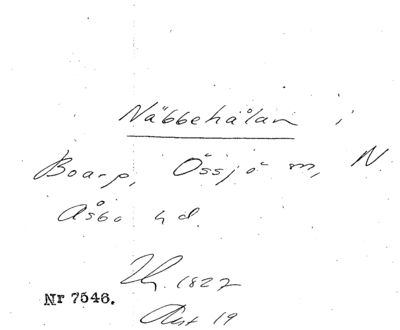 Näbbehålan i
Boarp, Össjö sn, N.
Åsbo hd.
1827
Nr 7546.
19